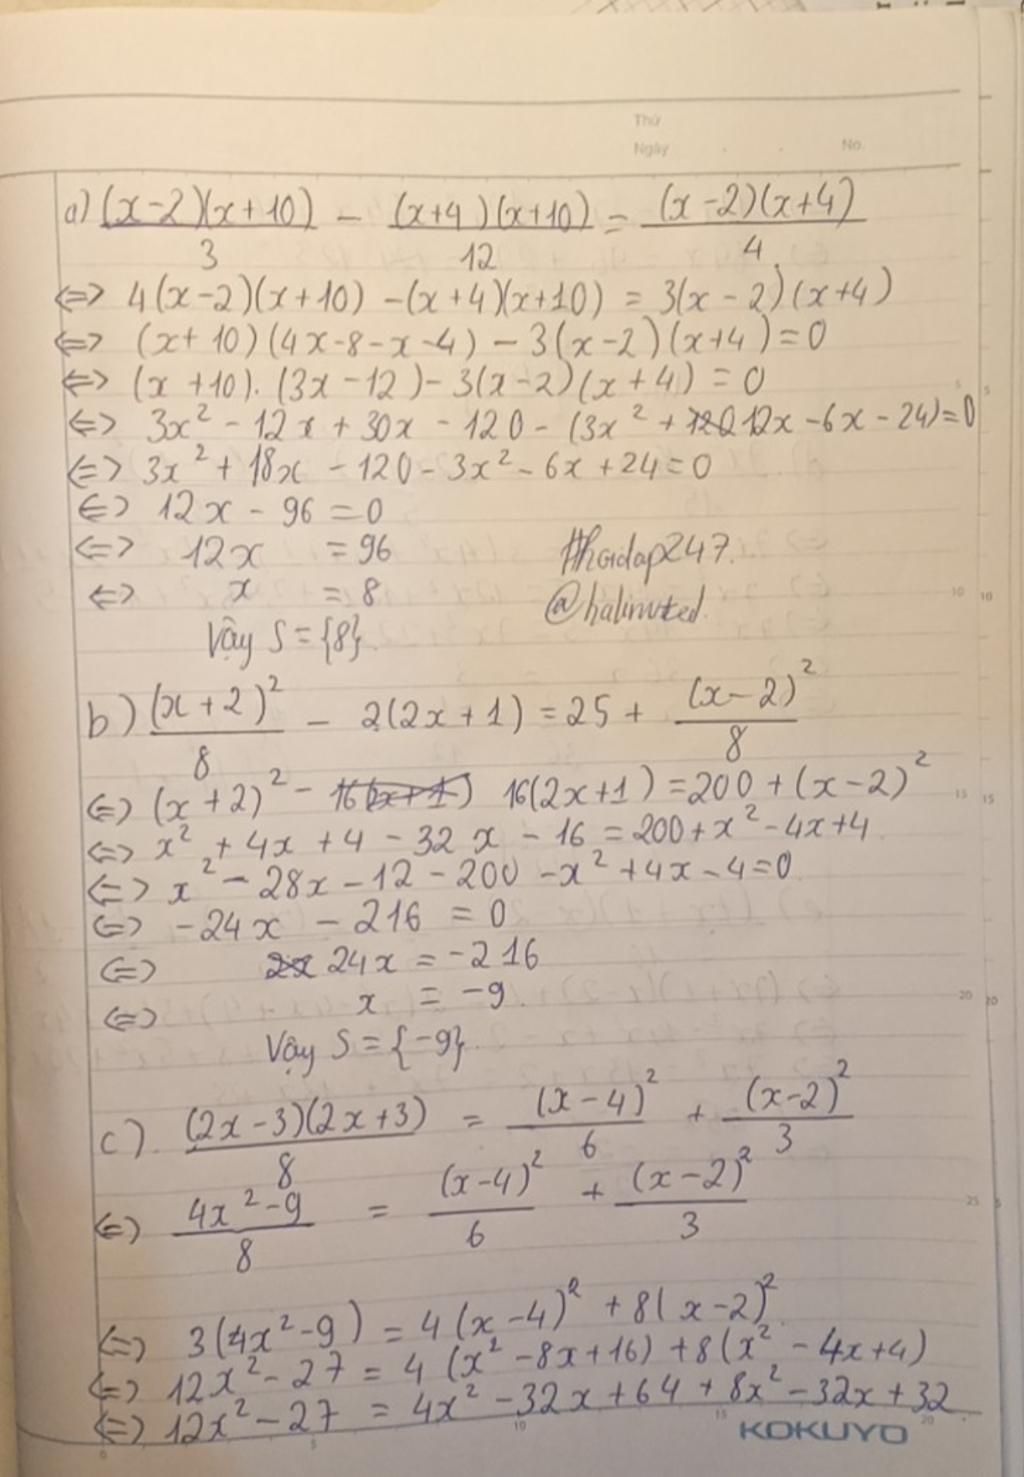 Thứ
Ngày . . No.
a) (x-2)(x+10)/3 - (x+4)(x+10)/12 = (x-2)(x+4)/4
<=> 4(x-2)(x+10) -(x+4)(x+10) = 3(x-2)(x+4)
<=> (x+10)(4x-8-x-4) - 3(x-2)(x+4)=0
<=> (x+10).(3x-12)-3(x-2)(x+4)=0
<=> 3x² - 12x + 30x - 120 - (3x² + 12x - 6x - 24)=0
<=> 3x² + 18x - 120 - 3x² - 6x + 24=0
<=> 12x - 96 = 0
<=> 12x = 96
#hoidap247.
<=> x = 8
@halinwted.
Vậy S = {8}.
b) (x+2)²/8 - 2(2x+1) = 25 + (x-2)²/8
<=> (x+2)² - 16(2x+1) = 200 + (x-2)²
<=> x² + 4x + 4 - 32x - 16 = 200 + x² - 4x + 4
<=> x² - 28x - 12 - 200 - x² + 4x - 4 = 0
<=> -24x - 216 = 0
<=> 24x = -216
<=> x = -9.
Vậy S = {-9}.
c). (2x-3)(2x+3)/8 = (x-4)²/6 + (x-2)²/3
<=> 4x²-9/8 = (x-4)²/6 + (x-2)²/3
<=> 3(4x²-9) = 4(x-4)² + 8(x-2)²
<=> 12x² - 27 = 4(x² - 8x + 16) + 8(x² - 4x + 4)
<=> 12x² - 27 = 4x² - 32x + 64 + 8x² - 32x + 32
KOKUYO